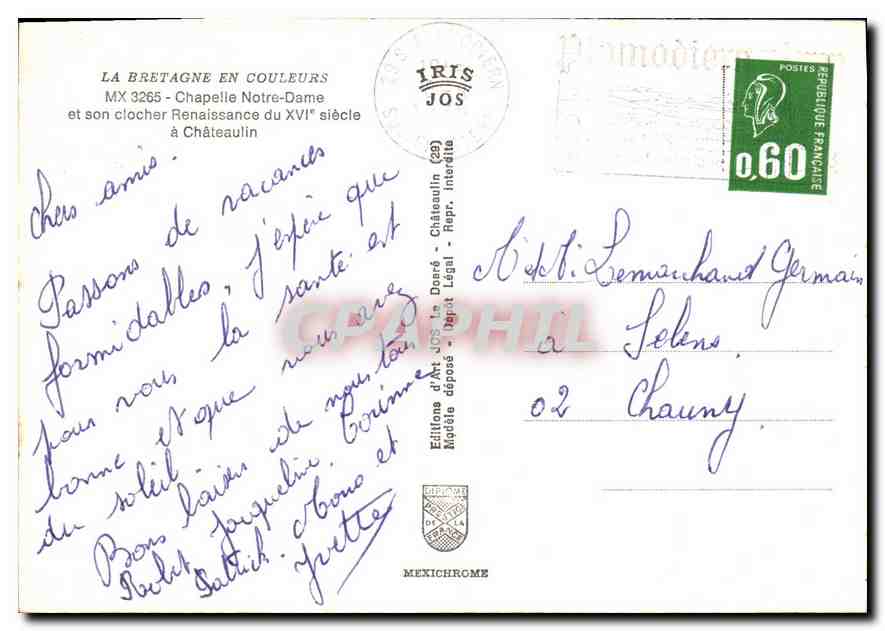 LA BRETAGNE EN COULEURS
MX 3265 - Chapelle Notre-Dame
et son clocher Renaissance du XVIe siècle
à Châteaulin
IRIS
JOS
Plomodiern
POSTES
RÉPUBLIQUE FRANÇAISE
0,60
Chers amis.
Passons de vacances
formidables, j'espère que
pour vous la santé est
bonne et que vous avez
du soleil.
Bons baisers de nous tous
Jacqueline. Corinne
Robert Patrick. Mono et
Yvette
Editions d'Art JOS Le Doaré - Châteaulin (29)
Modèle déposé - Dépôt Légal - Repr. interdite
M. Mr Lemarchand Germain
à Selens
02 Chauny
CPAPHIL
DIPLOME
PRESTIGE
DE LA
FRANCE
MEXICHROME